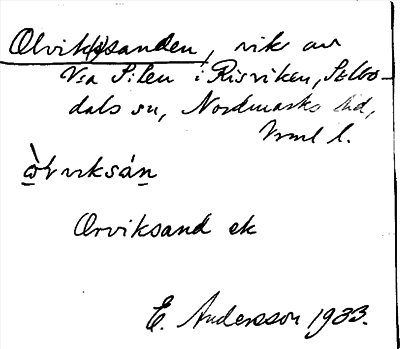 Olvik(s)sanden, vik av
V:a Silen i Risviken, Sillbo-
dals sn, Nordmarks hd,
Vrml l.
Orviksand ek
E. Andersson 1933.